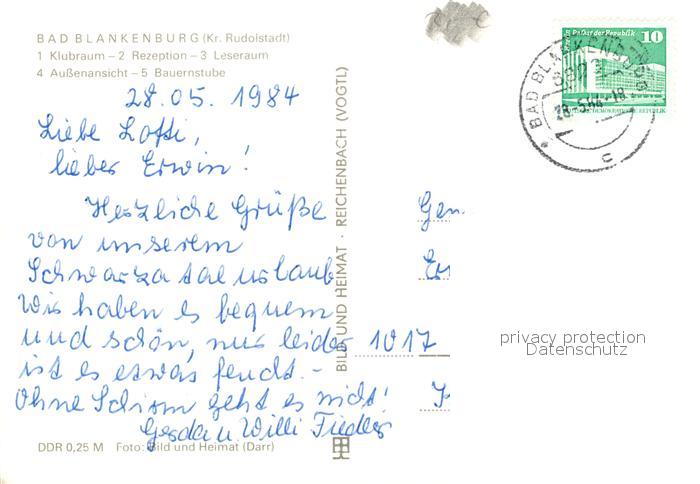 BAD BLANKENBURG (Kr. Rudolstadt)
1 Klubraum – 2 Rezeption – 3 Leseraum
4 Außenansicht – 5 Bauernstube
28.05. 1984
Liebe Lotti,
lieber Erwin!
Herzliche Grüße
von unserem
Schwarzatalurlaub
Wir haben es bequem
und schön, nur leider
ist es etwas feucht. –
Ohne Schirm geht es nicht!
Gerda u. Willi Fiedler
DDR 0,25 M Foto: Bild und Heimat (Darr)
BILD UND HEIMAT · REICHENBACH (VOGTL)
Gen.
1017
Palast der Republik 10
DEUTSCHE DEMOKRATISCHE REPUBLIK
BAD BLANKENBURG
6823
c
privacy protection
Datenschutz